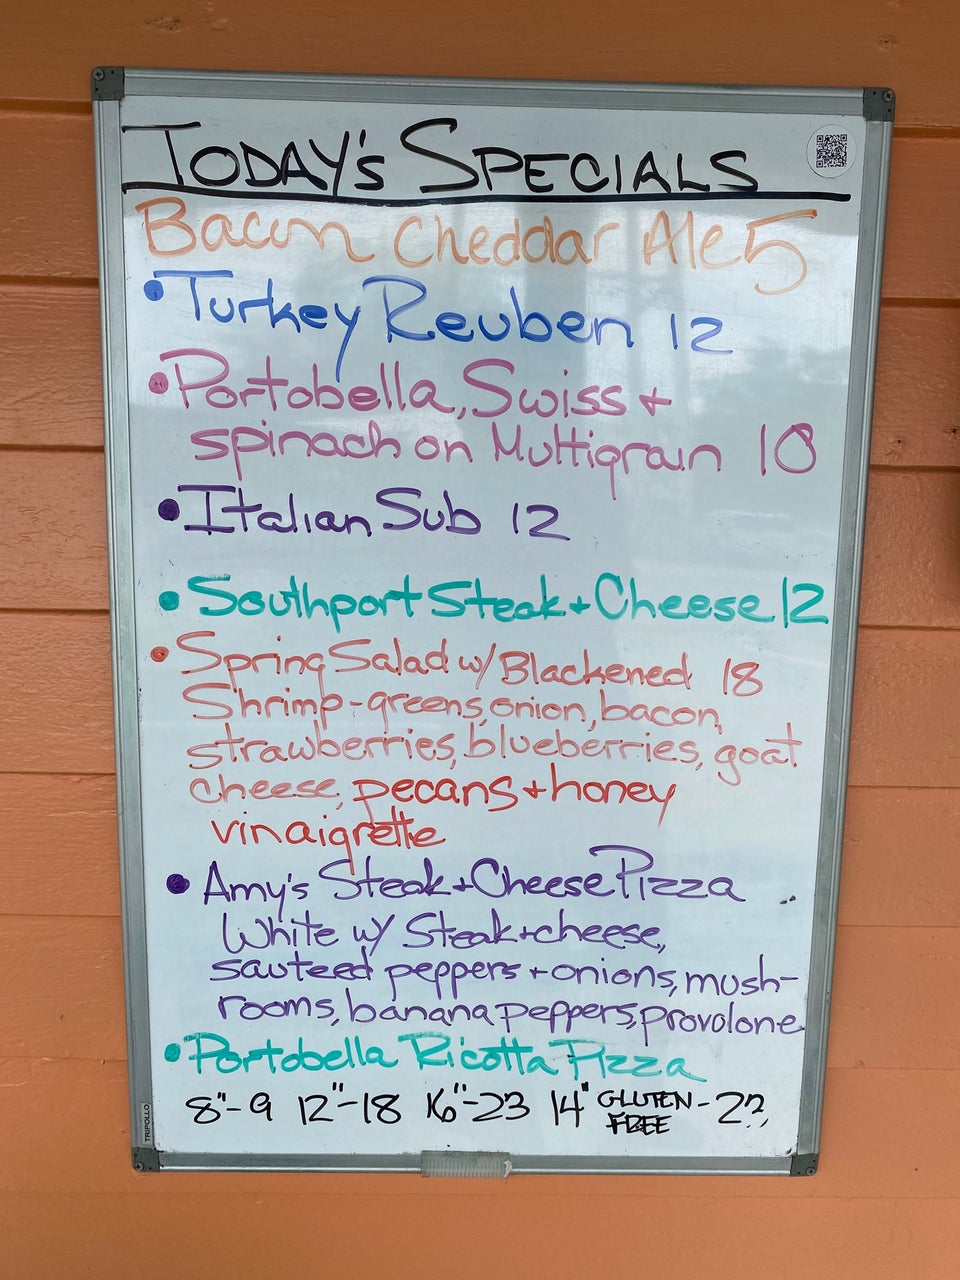 TODAY'S SPECIALS
Bacon Cheddar Ale 5
• Turkey Reuben 12
• Portobella, Swiss +
spinach on Multigrain 10
• Italian Sub 12
• Southport Steak + Cheese 12
• Spring Salad w/ Blackened 18
Shrimp - greens, onion, bacon,
strawberries, blueberries, goat
cheese, pecans + honey
vinaigrette
• Amy's Steak + Cheese Pizza
White w/ Steak + cheese,
sauteed peppers + onions, mush-
rooms, banana peppers, provolone
• Portobella Ricotta Pizza
8"-9 12"-18 16"-23 14" GLUTEN FREE -
TRIPOLLO